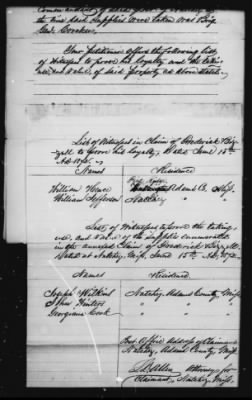 the time said supplies were taken was Brig
Genl.
Your petitioner offers the following list
of witnesses to prove his loyalty and the taking
use and value of said property as above stated.
List of Witnesses in Claim of Broderick
to prove his loyalty. Dated June 15th
A.D. 1872.
Names Residence
William House Adams Co. Miss.
William Jefferson Natchez "
List of Witnesses to prove the taking,
use and value of the supplies enumerated
in the annexed Claim of Broderick
Dated at Natchez, Miss, June 15th A.D. 1872.
Names Residence
Joseph Wilkins Natchez, Adams County, Miss.
John Winters " " "
Georgiana Cook " " "
Post Office Address of Claimant
Natchez, Adams County, Miss.
Attorney for
Claimant, Natchez, Miss.